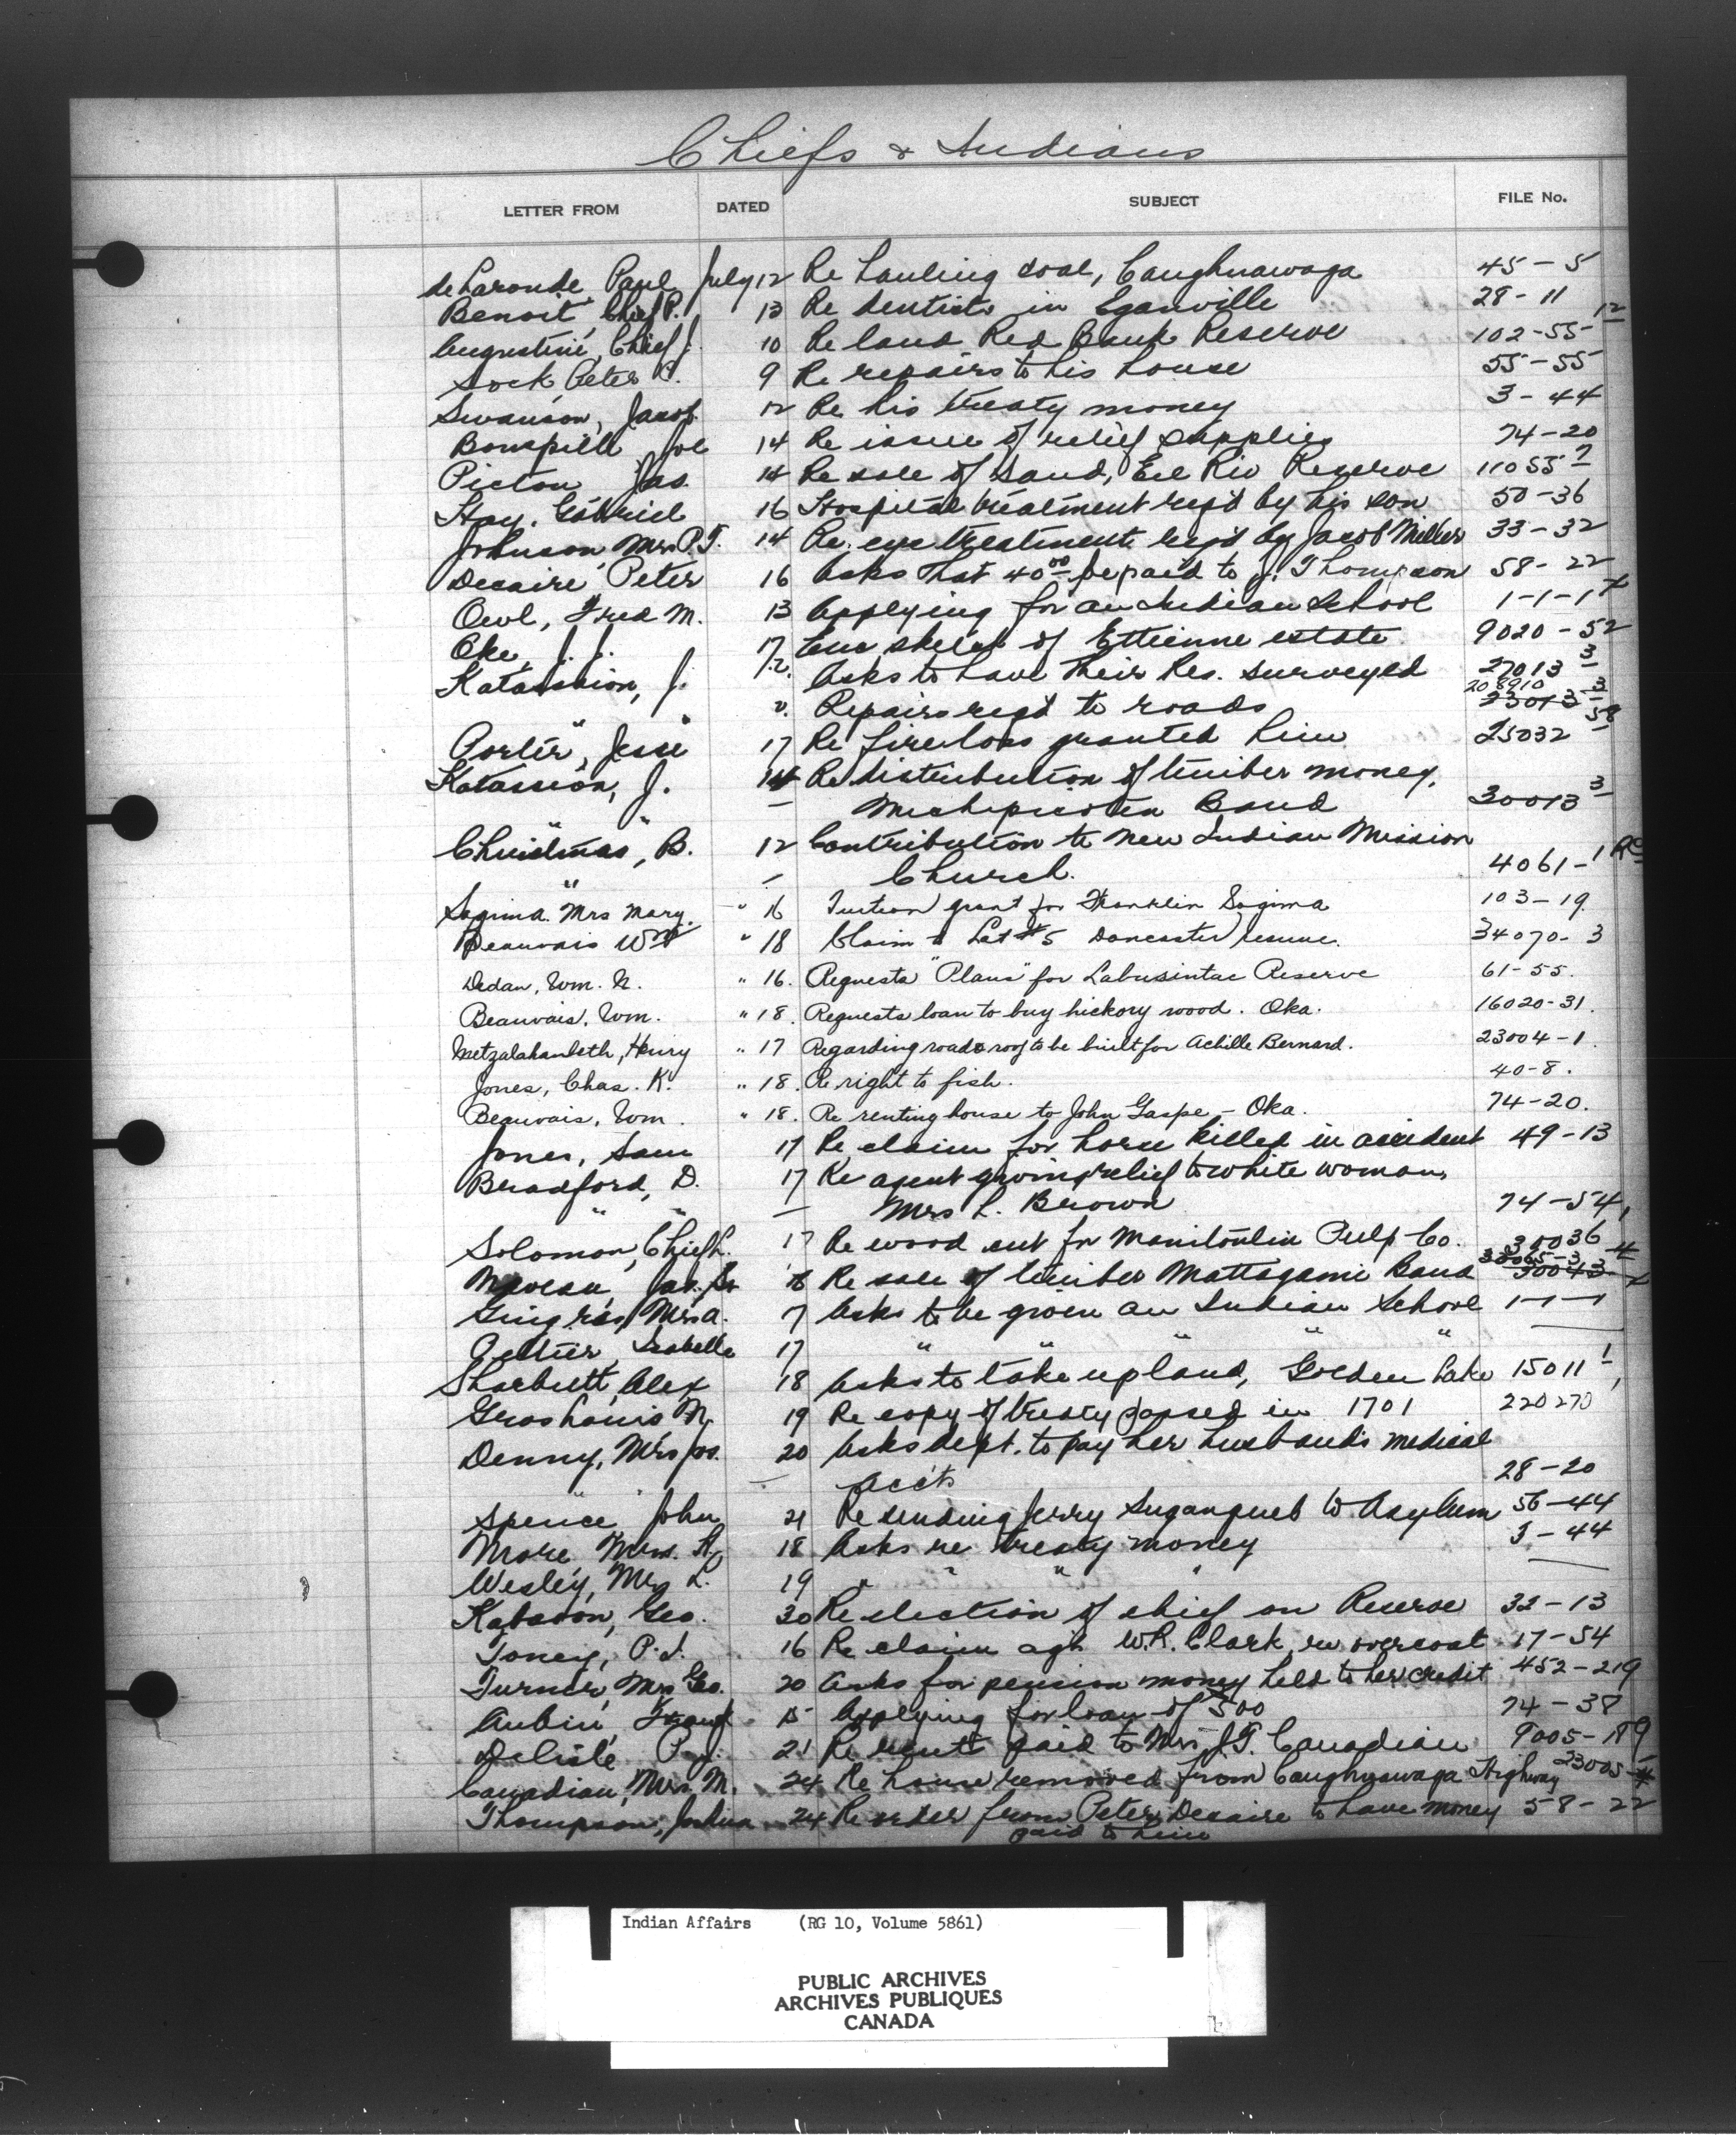 Chiefs & Indians
LETTER FROM DATED SUBJECT FILE No.
deLaronde Paul July 12 Re hauling coal, Caughnawaga 45-5
Benoit, Chief P. 13 Re dentists in Eganville 28-11
Augustine, Chief J. 10 Re land Red Bank Reserve 102-55-12
Sock Peter 9 Re repairs to his house 55-55
Swanson, Jacob 12 Re his treaty money 3-44
Bonspille Joe 14 Re issue of relief supplies 74-20
Picton Jas. 14 Re sale of sand, Eel Riv Reserve 11055 7
Hay, Gabriel 16 Hospital treatment req'd by his son 50-36
Johnson, Mrs P.T. 14 Re. eye treatment req'd by Jacob Miller 33-32
Decaire Peter 16 Asks that 40 00 be paid to J. Thompson 58-22
Owl, Fred M. 13 Applying for an Indian School 1-1-1 x
Oke, J. J. 17 Enc sketch of Ettienne estate 9020-52
Katassion, J. 12. Asks to have their Res. surveyed 27013 3
" " ". Repairs reqd to roads 208910 23013-3
Porter, Jesse 17 Re fire loss granted him 25032 58
Katassion, J. 14 Re distribution of timber money,
" " — Michipicoten Band 30013 3
Christmas, B. 12 Contribution to new Indian Mission
" — Church. 4061-1 RC
Sagima. Mrs Mary. " 16 Tuition grant for Franklin Sagima 103-19
Beauvais Wm " 18 Claim to Lot #5 Doncaster reserve. 34070-3
Dedan, Wm. N. " 16. Requests "Plans" for Tabusintac Reserve 61-55.
Beauvais, Wm. " 18. Requests loan to buy hickory wood. Oka. 16020-31.
Metzalabanleth, Henry " 17 Regarding road & roof to be built for Achille Bernard. 23004-1.
Jones, Chas. K. " 18. Re right to fish. 40-8.
Beauvais, Wm. " 18. Re renting house to John Gaspe - Oka. 74-20.
Jones, Sam 17 Re claim for horse killed in accident 49-13
Bradford, D. 17 Re agent giving relief to white woman,
" " — Mrs L. Brown 74-54,
Solomon, Chief L. 17 Re wood cut for Manitoulin Pulp Co. 30036
Jas. Sr 18 Re sale of timber Mattagami Band 30065-3 30043 4
Gingras, Mrs A. 7 Asks to be given an Indian School 1-1-1 x
Peltier Isabelle 17 " " " " " —
Sharbutt, Alex 18 Asks to take up land, Golden Lake 15011 1
Gros Louis N. 19 Re copy of treaty passed in 1701 220270
Denny, Mrs Jos. 20 Asks dept. to pay her husband's medical
" " — acc'ts 28-20
Spence John 21 Re sending Jerry to Asylum 56-44
More, Mrs. H. 18 Asks re treaty money 3-44
Wesley, Mrs L. 19 " " " " —
Kabaoon, Geo. 20 Re election of chief on Reserve 32-13
Toney, P. J. 16 Re claim agst W.R. Clark, re overcoat 17-54
Turner, Mrs Geo. 20 Asks for pension money held to her credit 452-219
Aubin, Frank 15 Applying for loan of 500 74-38
Delisle P. J. 21 Re rent paid to Mrs J.T. Canadian 9005-189
Canadian, Mrs. M. 24 Re house removed from Caughnawaga Highway 23005-4
Thompson, Joshua 24 Re order from Peter Decaire to have money 58-22
paid to him
Indian Affairs (RG 10, Volume 5861)
PUBLIC ARCHIVES
ARCHIVES PUBLIQUES
CANADA